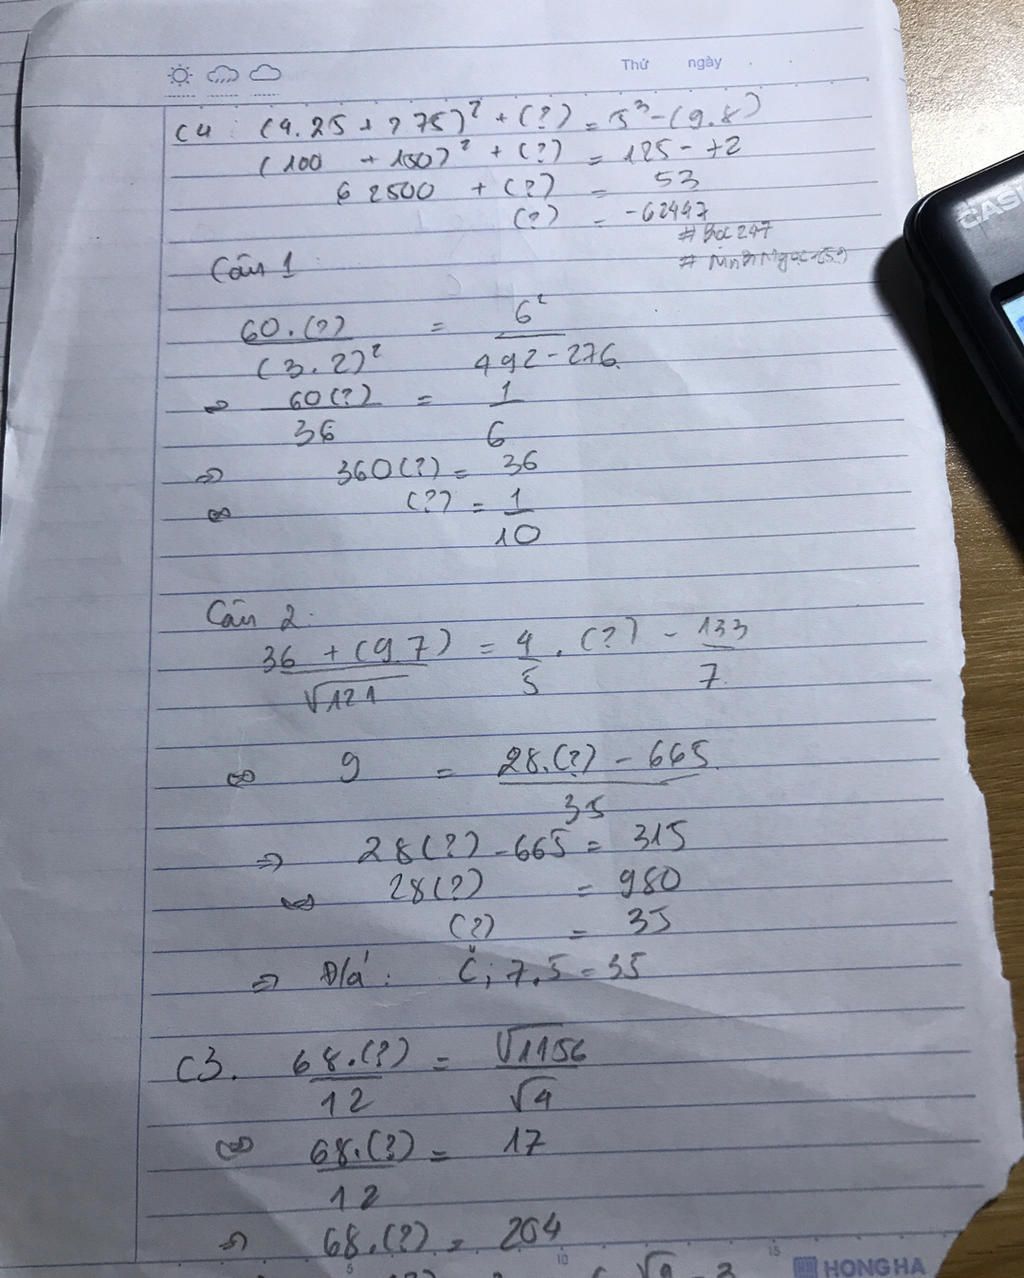 Thứ ngày
C4: (4.25 + 2.75)² + (?) = 5³ - (9.8)
(100 + 150)² + (?) = 125 - 72
62500 + (?) = 53
(?) = -62447
CASI
Câu 1:
60.(?) / (3.2)² = 6² / 492 - 276
⇒ 60(?) / 36 = 1 / 6
⇒ 360(?) = 36
⇔ (?) = 1 / 10
Câu 2:
36 + (9.7) / √121 = 4 / 5 . (?) - 133 / 7
⇔ 9 = 28.(?) - 665 / 35
⇒ 28(?) - 665 = 315
⇔ 28(?) = 980
(?) = 35
⇒ Đ/á: C; 7.5 = 35
C3. 68.(?) / 12 = √1156 / √4
⇔ 68.(?) / 12 = 17
⇒ 68.(?) = 204
5 10 15
HONG HA